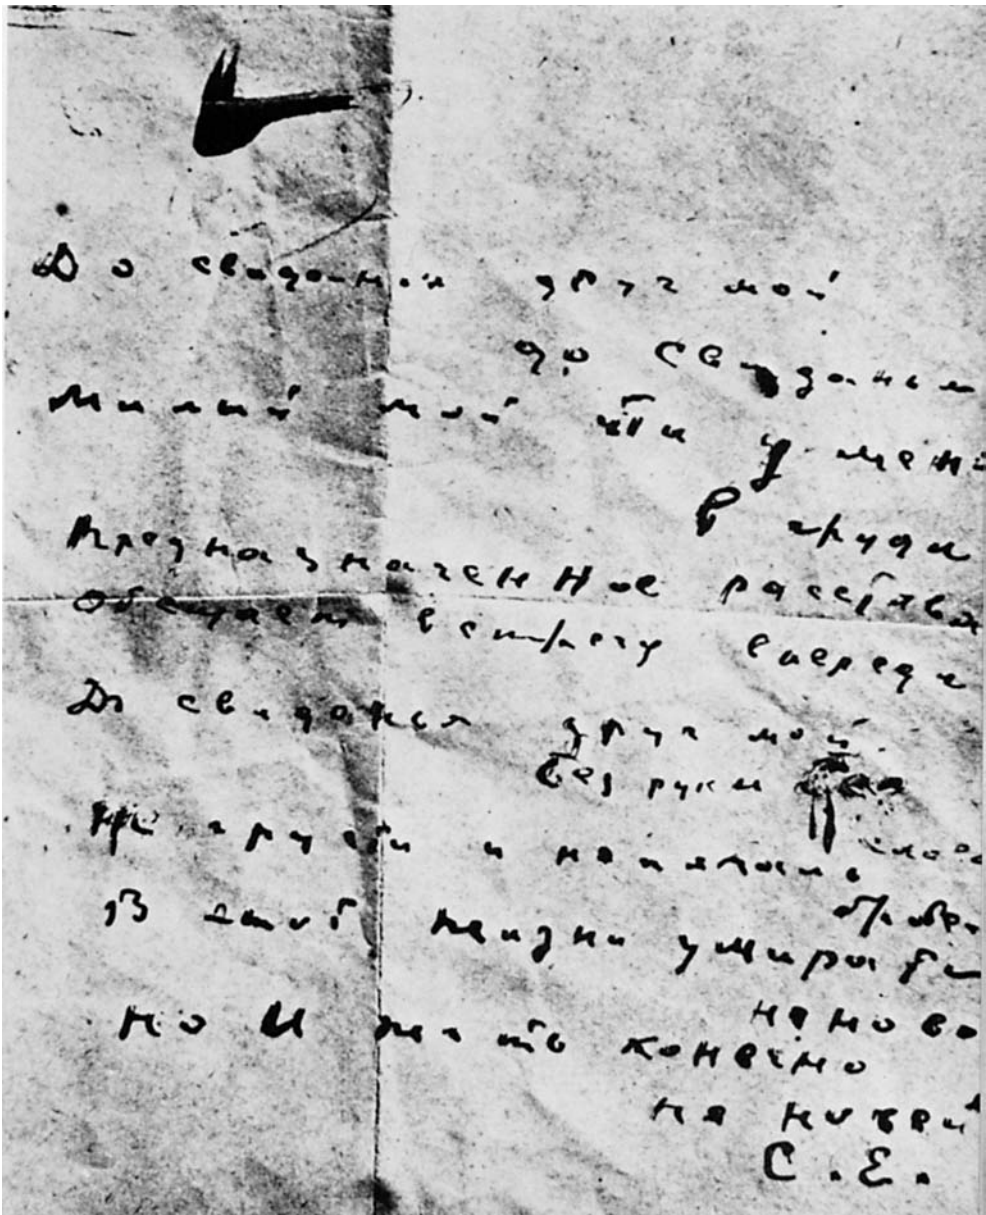 До свиданья друг мой
до свиданья
Милый мой ты у меня
в груди
Предназначенное расстава
Обещает встречу впереди
До свиданья друг мой
без руки
Не грусти и не печаль
бровей
В этой жизни умирать
не ново
но И жить конечно
не новей
С.Е.